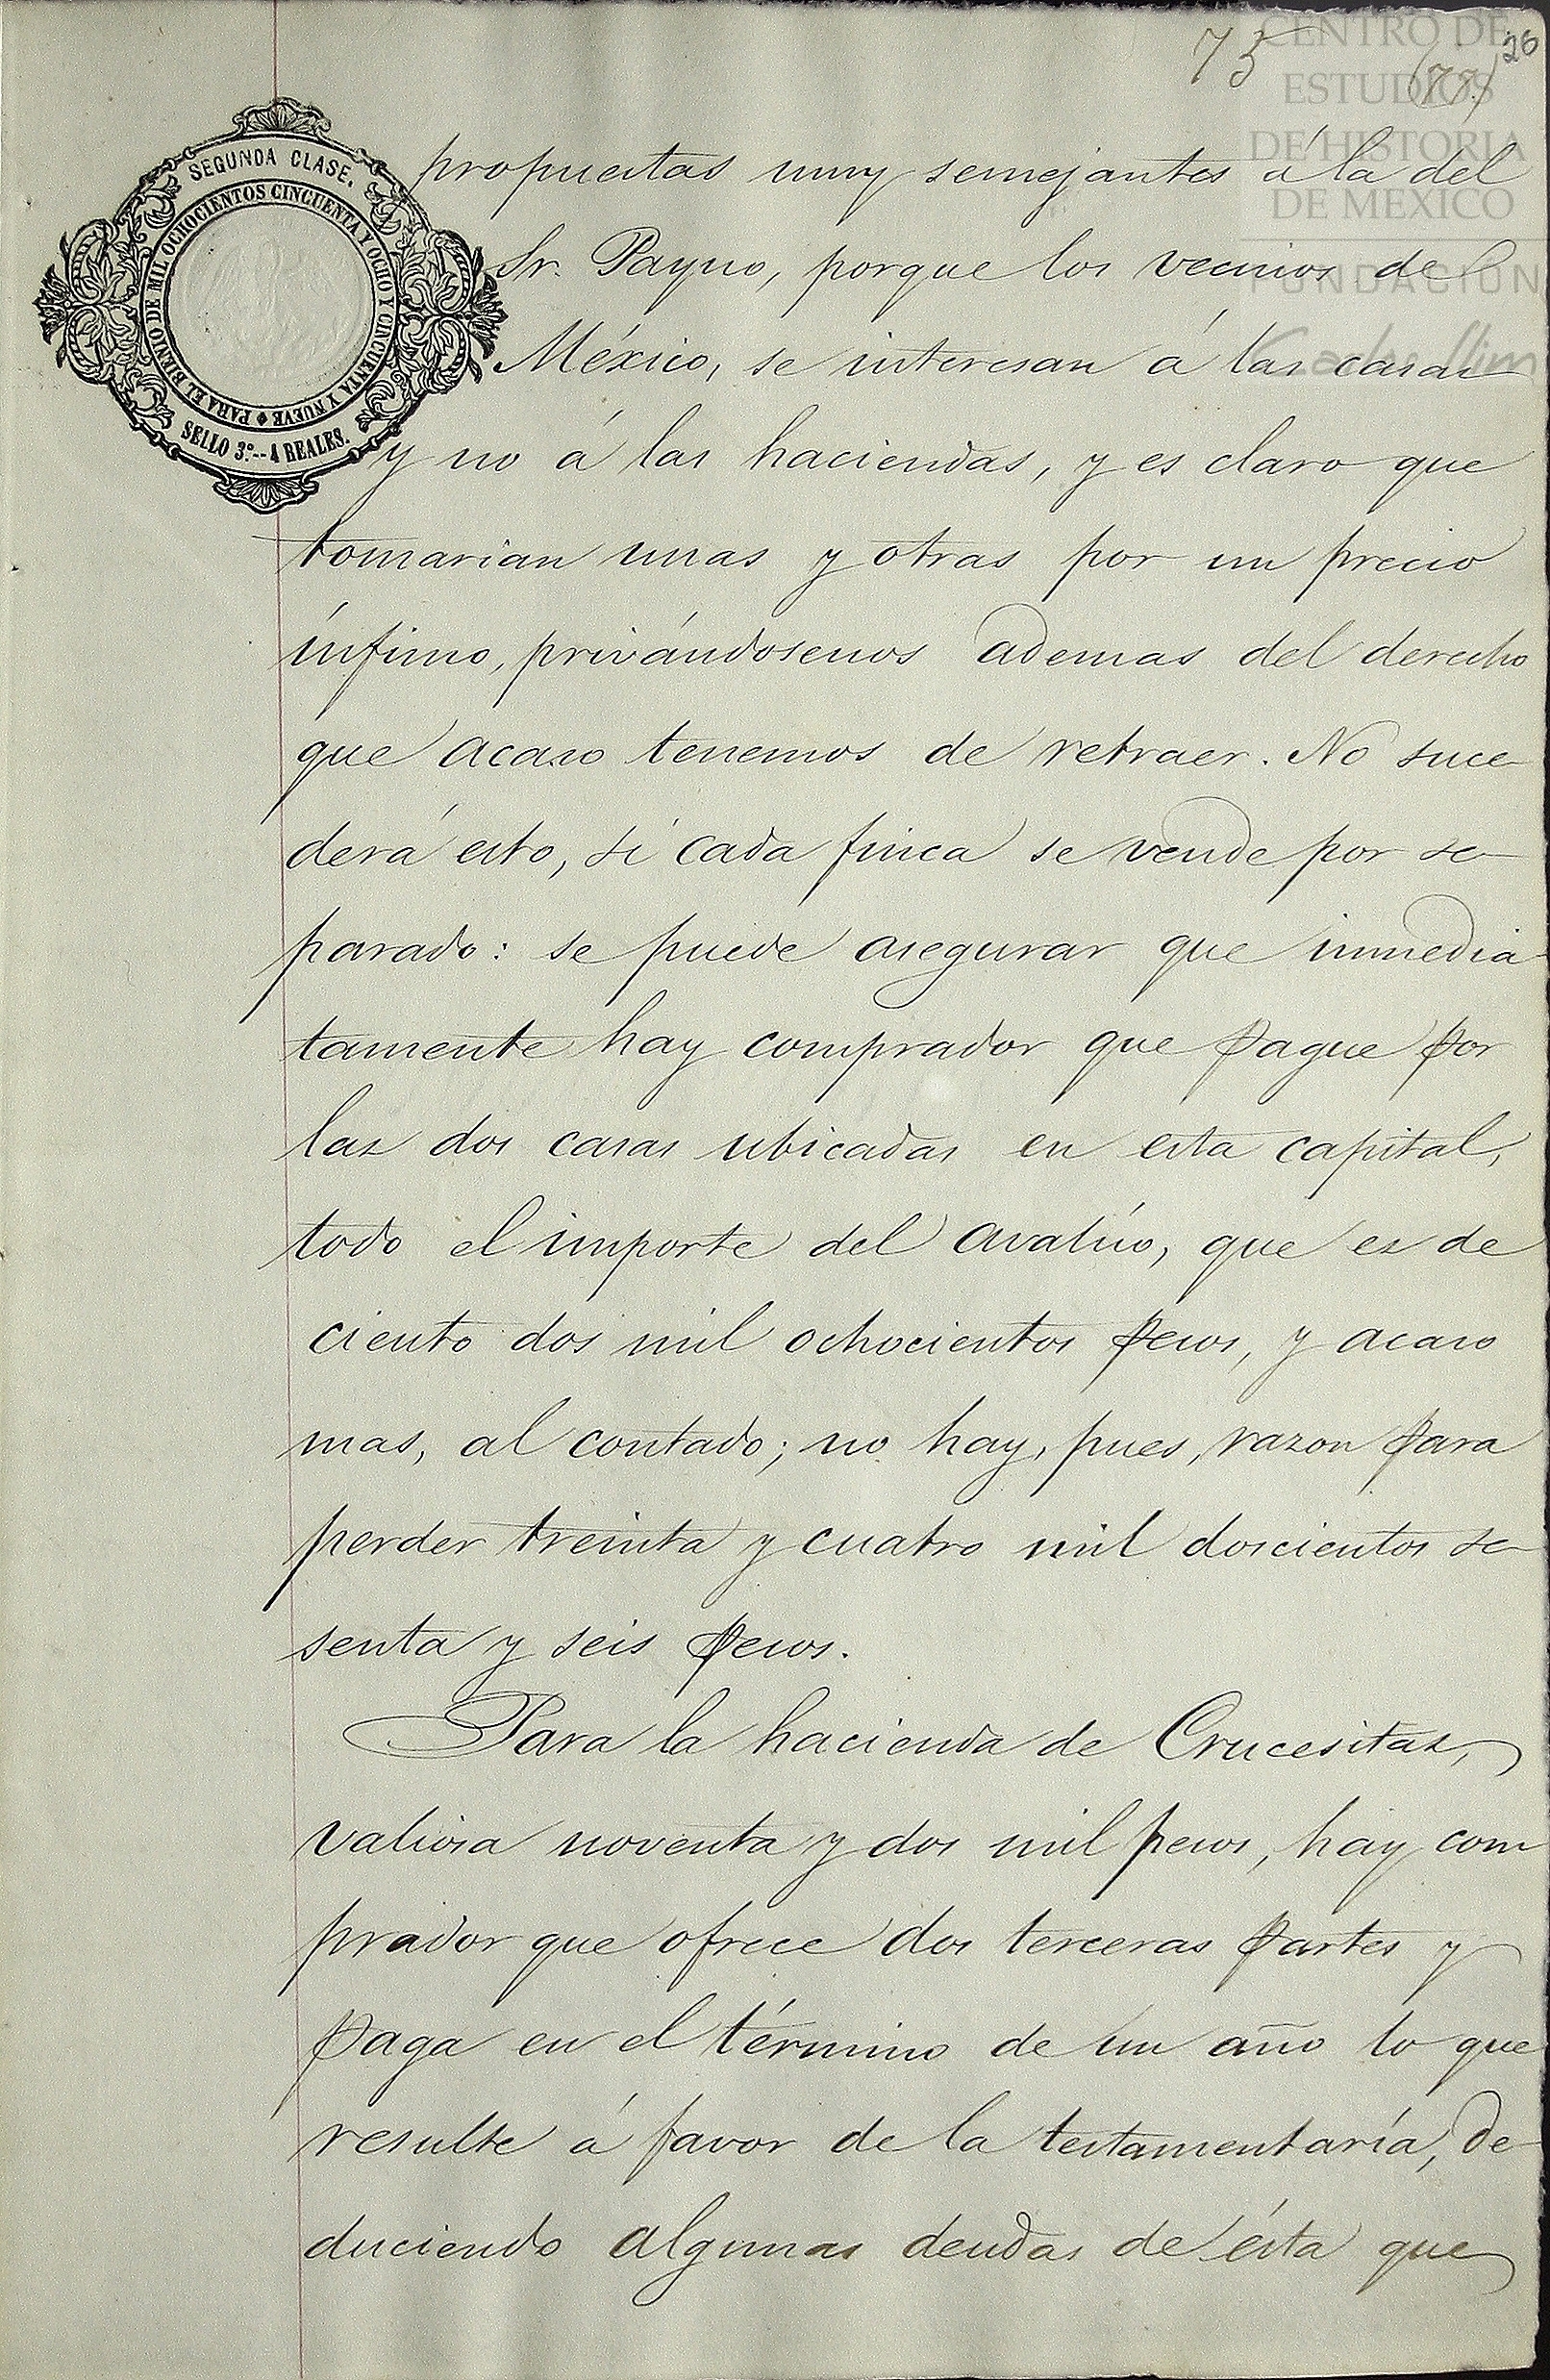 75 (77) 26
CENTRO DE
ESTUDIOS
DE HISTORIA
DE MEXICO
FUNDACION
Carlos Slim
SEGUNDA CLASE.
PARA EL BIENIO DE MIL OCHOCIENTOS CINCUENTA Y OCHO Y CINCUENTA Y NUEVE
SELLO 3º.--4 REALES.
propuestas muy semejantes á la del
Sr. Payno, porque los vecinos de
México, se interesan á las casas
y no á las haciendas, y es claro que
tomarian unas y otras por un precio
ínfimo, privándosenos ademas del derecho
que acaso tenemos de retraer. No suce-
derá esto, sí cada finca se vende por se-
parado: se puede asegurar que inmedia-
tamente hay comprador que pague por
las dos casas ubicadas en esta capital,
todo el importe del avalúo, que es de
ciento dos mil ochocientos pesos, y acaso
mas, al contado; no hay, pues, razon para
perder treinta y cuatro mil doscientos se-
senta y seis pesos.
Para la hacienda de Crucesitas,
valiosa noventa y dos mil pesos, hay com
prador que ofrece dos terceras partes y
paga en el término de un año lo que
resulte á favor de la testamentaría, de-
duciendo algunas deudas de ésta que